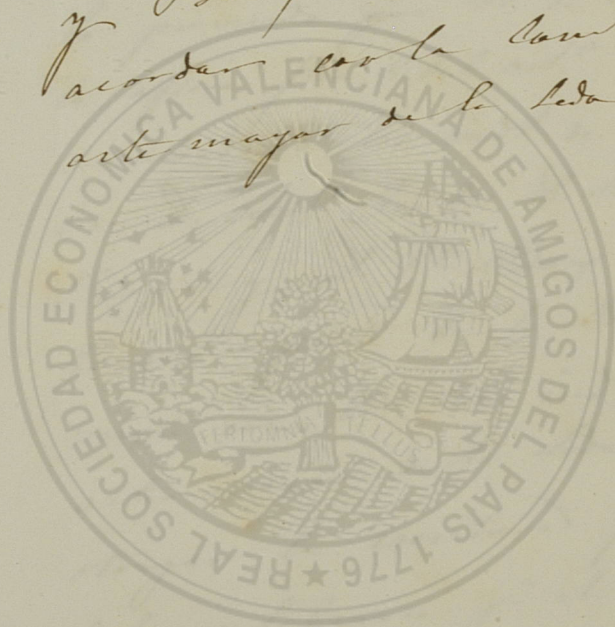 y
acordar con la Com
arte mayor de la Seda
REAL SOCIEDAD ECONOMICA VALENCIANA DE AMIGOS DEL PAIS 1776 ★
FERT OMNIA TELLUS